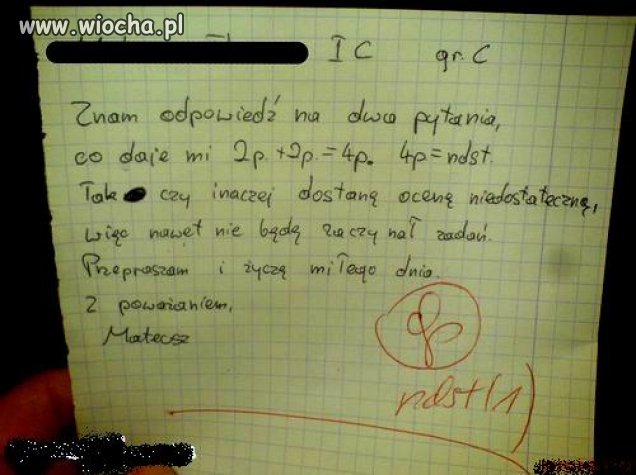 www.wiocha.pl
I C gr. C
Znam odpowiedź na dwa pytania,
co daje mi 2p. + 2p. = 4p. 4p = ndst.
Tak czy inaczej dostanę ocenę niedostateczną,
więc nawet nie będę zaczynał zadań.
Przepraszam i życzę miłego dnia.
Z poważaniem,
Mateusz
0p
ndst(1)